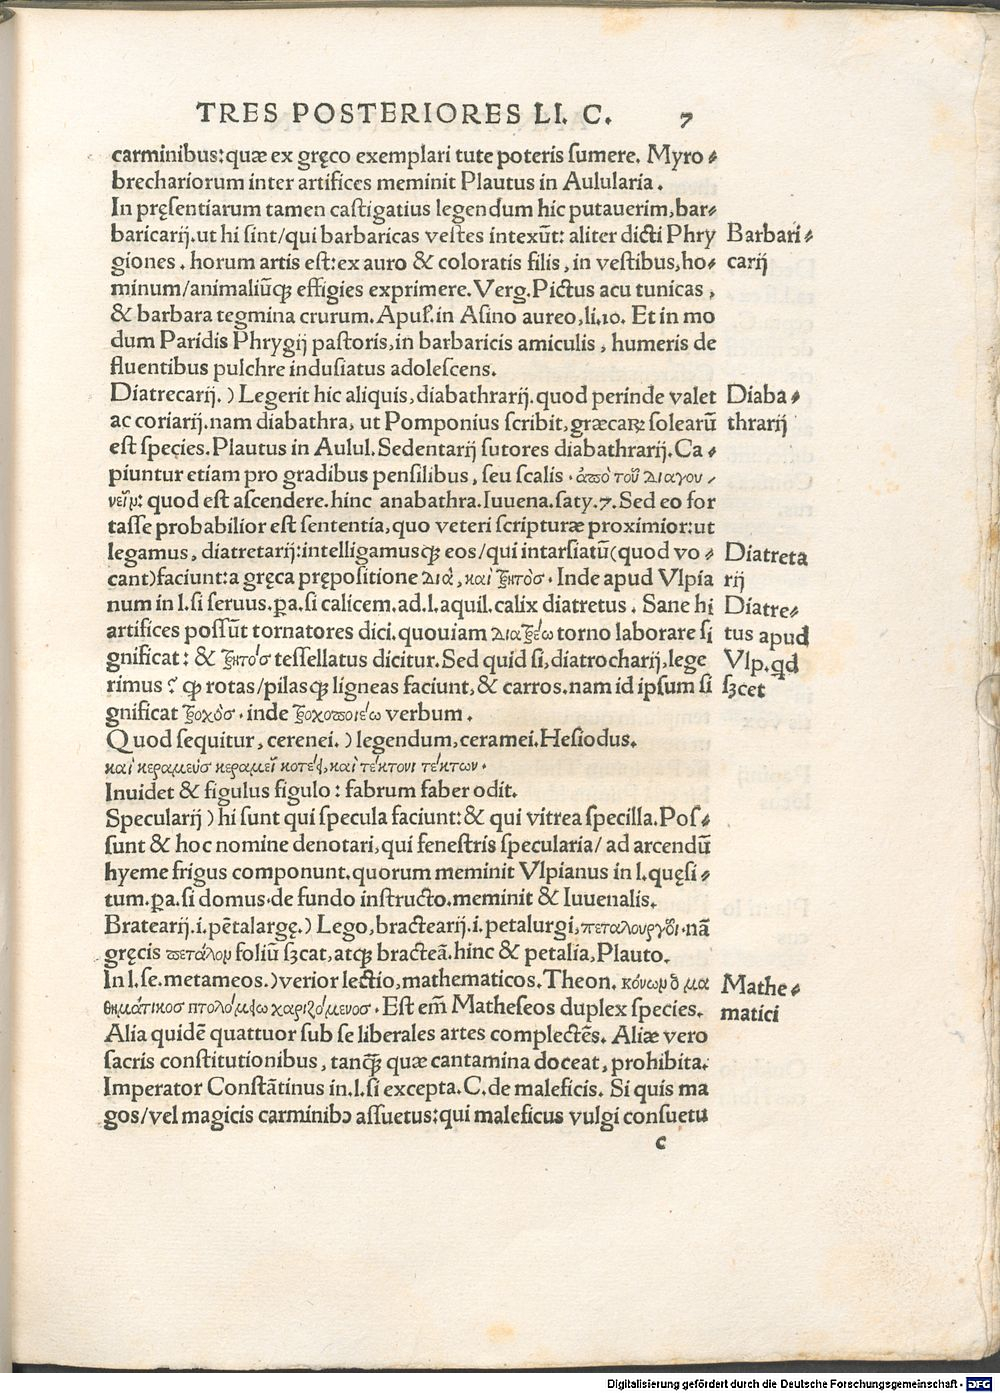 TRES POSTERIORES LI. C. 7
carminibus:quæ ex gręco exemplari tute poteris ſumere. Myro⸗
brechariorum inter artifices meminit Plautus in Aulularia.
In pręſentiarum tamen caſtigatius legendum hic putauerim,bar⸗
baricarij.ut hi ſint/qui barbaricas veſtes intexũt: aliter dicti Phry
giones. horum artis eſt:ex auro & coloratis filis, in veſtibus,ho⸗
minum/animaliũqꝫ effigies exprimere. Verg. Pictus acu tunicas,
& barbara tegmina crurum. Apuſ.in Aſino aureo,li.10. Et in mo
dum Paridis Phrygij paſtoris,in barbaricis amiculis, humeris de
fluentibus pulchre induſiatus adoleſcens.
Diatrecarij.) Legerit hic aliquis,diabathrarij.quod perinde valet
ac coriarij.nam diabathra, ut Pomponius ſcribit,græcaꝝ ſolearũ
eſt ſpecies.Plautus in Aulul.Sedentarij ſutores diabathrarij.Ca⸗
piuntur etiam pro gradibus penſilibus, ſeu ſcalis. ἀπὸ τοῦ διαγου⸗
νεῖν: quod eſt aſcendere.hinc anabathra.Iuuena.ſaty.7.Sed eo for
taſſe probabilior eſt ſententia,quo veteri ſcripturæ proximior:ut
legamus, diatretarij:intelligamusqꝫ eos/qui intarſiatũ(quod vo⸗
cant)faciunt:a gręca prępoſitione διὰ, καὶ τρητὸσ. Inde apud Vlpia
num in l.ſi ſeruus.ꝑa.ſi calicem.ad.l.aquil.calix diatretus. Sane hi
artifices poſſũt tornatores dici.quouiam διατρέω torno laborare ſi
gnificat: & τρητόσ teſſellatus dicitur.Sed quid ſi,diatrocharij,lege
rimus? qꝫ rotas/pilasqꝫ ligneas faciunt,& carros.nam id ipſum ſi
gnificat τροχὸσ. inde τροχοποιέω verbum.
Quod ſequitur, cerenei.) legendum,ceramei.Heſiodus.
καὶ κεραμεὺσ κεραμεῖ κοτέει, καὶ τέκτονι τέκτων.
Inuidet & figulus figulo: fabrum faber odit.
Specularij) hi ſunt qui ſpecula faciunt:& qui vitrea ſpecilla.Poſ⸗
ſunt & hoc nomine denotari,qui feneſtris ſpecularia/ ad arcendũ
hyeme frigus componunt.quorum meminit Vlpianus in l.quęſi⸗
tum.ꝑa.ſi domus.de fundo inſtructo.meminit & Iuuenalis.
Bratearij.i.pẽtalargę.) Lego,bractearij.i.petalurgi, πεταλουργοὶ.nã
gręcis πετάλον foliũ ſꝫcat,atqꝫ bracteã.hinc & petalia,Plauto.
In l.ſe.metameos.)verior lectio,mathematicos.Theon. κόνων ὁ μα
θημάτικοσ πτολόμῳ χαριζόμενοσ. Eſt em̃ Matheſeos duplex ſpecies.
Alia quidẽ quattuor ſub ſe liberales artes complectẽs. Aliæ vero
ſacris conſtitutionibus, tanqꝫ̃ quæ cantamina doceat, prohibita.
Imperator Conſtãtinus in.l.ſi excepta.C.de maleficis. Si quis ma
gos/vel magicis carminibꝰ aſſuetus:qui maleficus vulgi conſuetu
c
Barbari⸗
carij
Diaba⸗
thrarij
Diatreta
rij
Diatre⸗
tus apud
Vlp.qd
ſꝫcet
Mathe⸗
matici
Digitalisierung gefördert durch die Deutsche Forschungsgemeinschaft - DFG